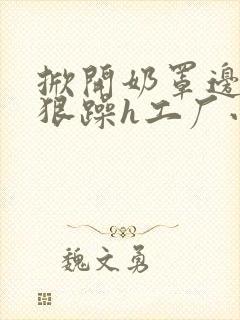 掀開奶罩邊
狠躁h工厂
魏文勇